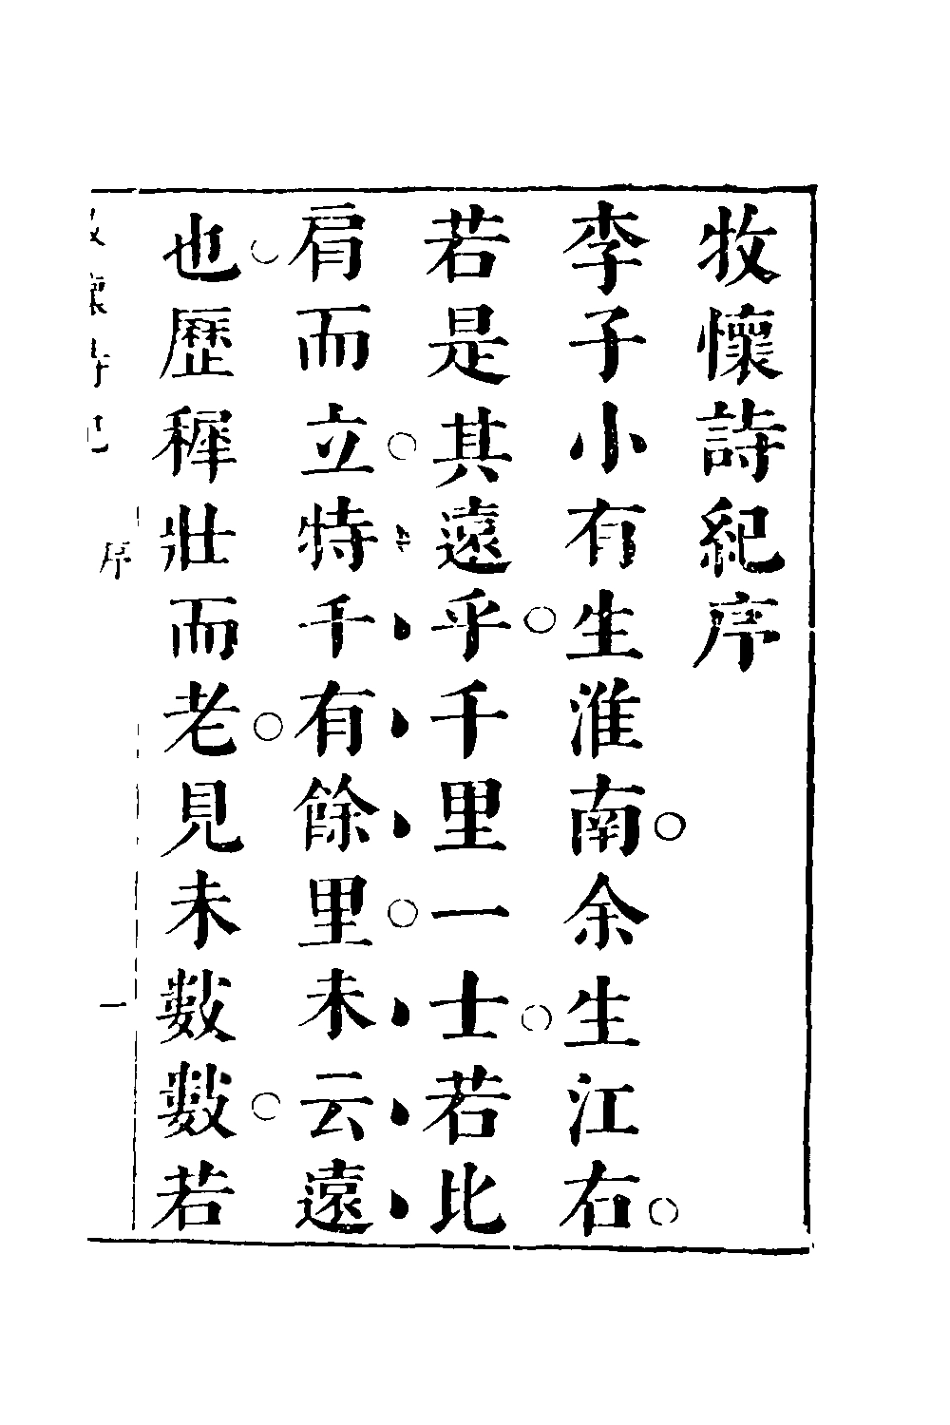 牧懷詩紀序
李子小有生淮南余生江右
若是其遠乎千里一士若比
肩而立特千有餘里未云遠
也歷穉壯而老見未數數若
牧懷詩紀 序 一